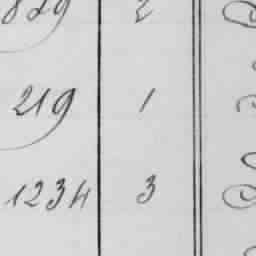 829 2
219 1
1234 3